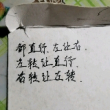 部直行，左让右，
左转让直行，
右转让左转。